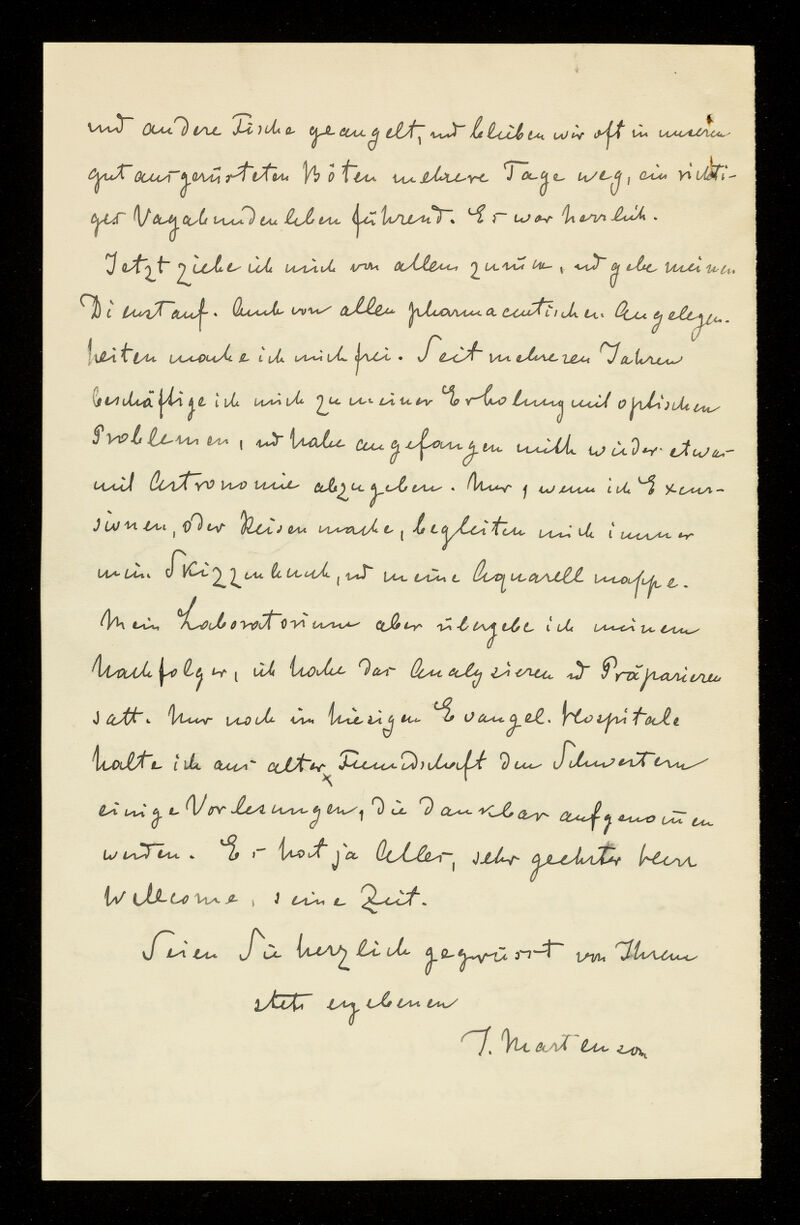 und andere Fische geangelt, und blieben wir oft in unseren
gut ausgerüsteten Böten mehrere Tage weg, ein richti-
ges Vagabundenleben führend. Es war herrlich.
Jetzt ziehe ich mich von allem zurück, und gebe meinen
Dienst auf. Auch von allen pharmaceutischen Angelegen-
heiten mache ich mich frei. Seit mehreren Jahren
beschäftige ich mich zu meiner Erholung mit optischen
Problemen, und habe angefangen mich wieder etwas
mit Astronomie abzugeben. Nur, wenn ich Excur-
sionen, oder Reisen mache, begleiten mich immer
mein Skizzenbuch, und meine Aquarellmappe.
Mein Laboratorium aber übergebe ich meinem
Nachfolger, ich habe das Analysieren und Präparieren
satt. Nur noch im hiesigen Evangel. Hospitale
halte ich aus alter Freundschaft den Schwestern
einige Vorlesungen, die dankbar aufgenom̅en
werden. Es hat ja Alles, sehr geehrter Herr
Wellcome, seine Zeit.
Seien Sie herzlich gegrüsst von Ihrem
stets ergebenen
J. Martenson